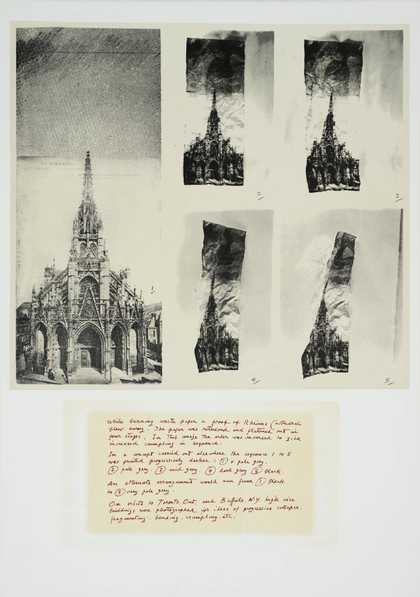 1
2
3
4
5
While burning waste paper a proof of Rheims Cathedral
blew away. The paper was retrieved and flattened out in
four stages. In this image the order was reversed to give
increased crumpling in sequence.
In a concept carried out elsewhere the sequence 1 to 5
was printed progressively darker: ① v. pale grey
② pale grey ③ mid grey ④ dark grey ⑤ black.
An alternate arrangement would run from ① black
to ⑤ very pale grey.
On visits to Toronto, Ont. and Buffalo N.Y. high rise
buildings were photographed for ideas of progressive collapse,
fragmenting, bending, crumpling etc.